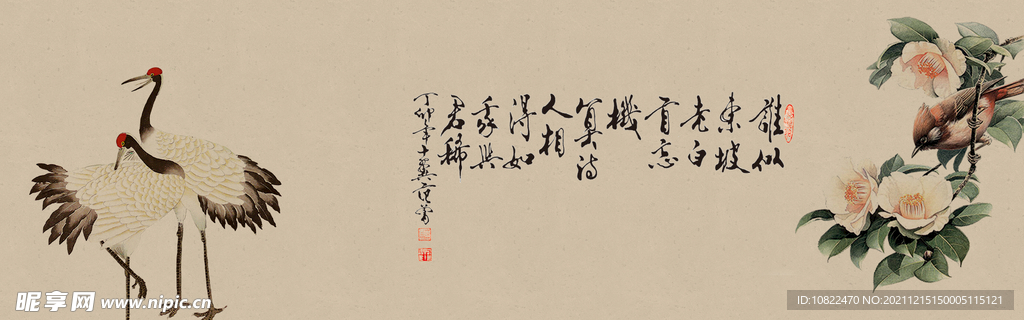 誰似
東坡
老白
首忘
機
算詩
人相
得如
我與
君稀
昵享网 www.nipic.cn
ID:10822470 NO:20211215150005115121